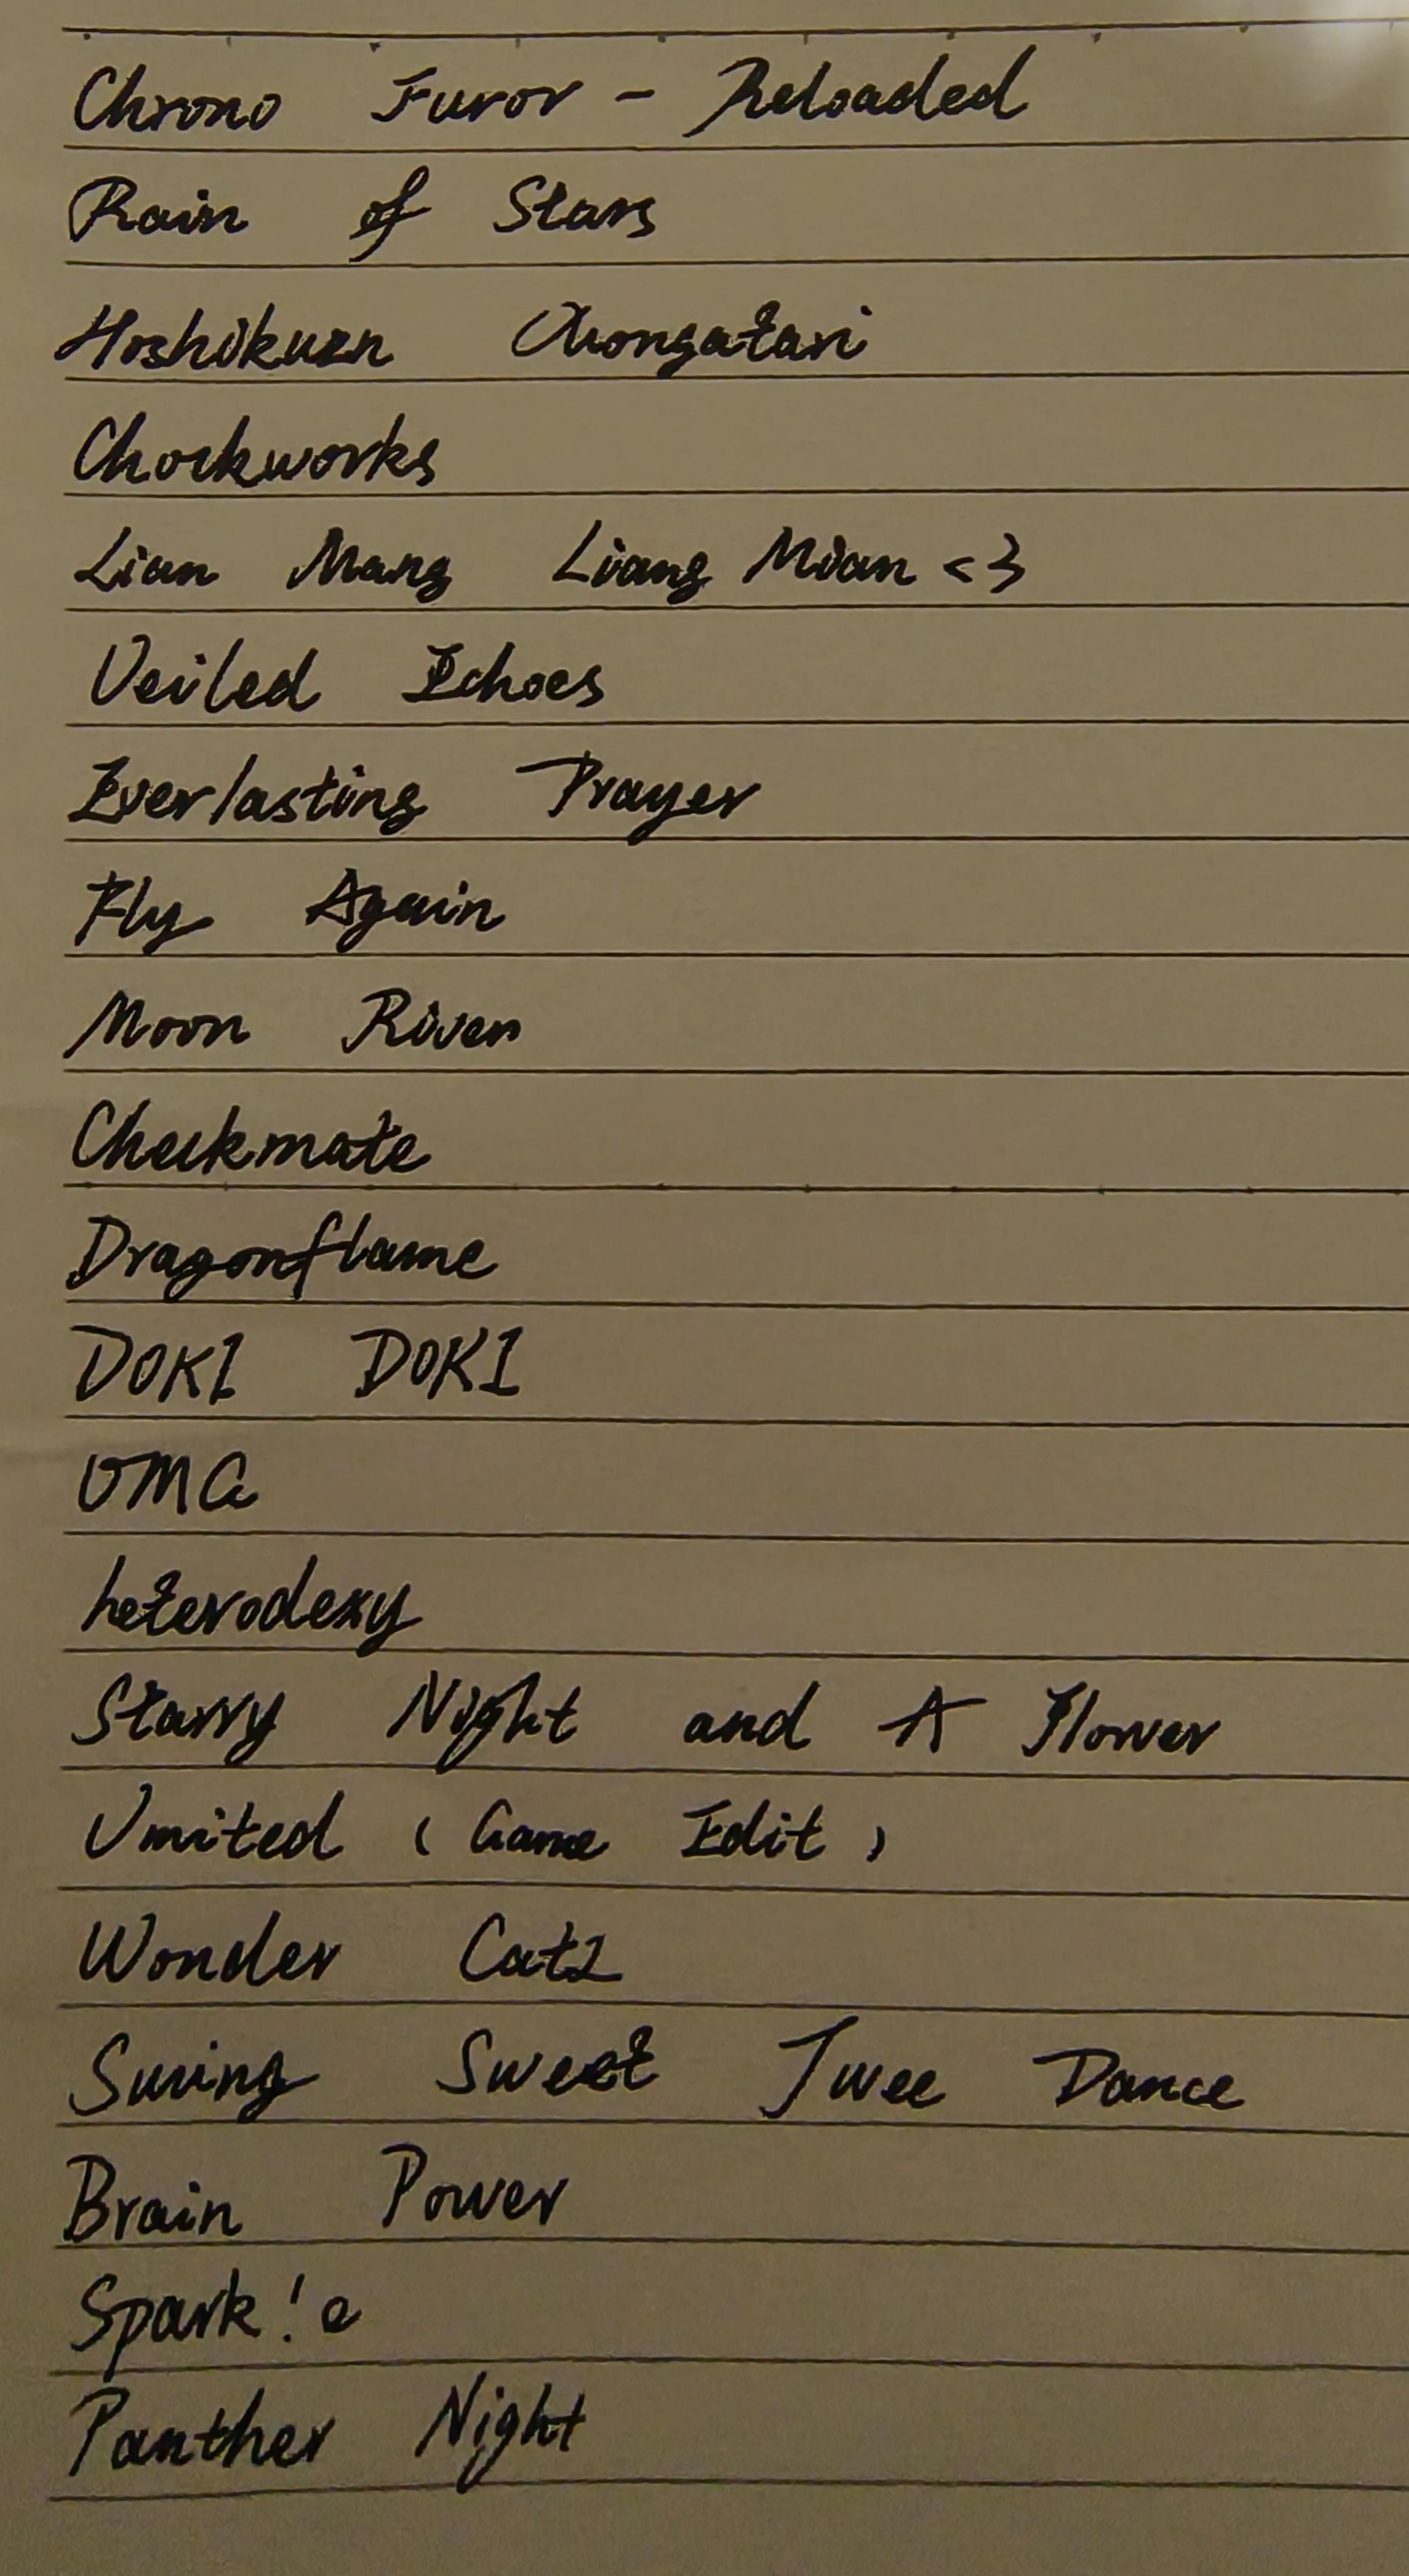 Chrono Furor - Reloaded
Rain of Stars
Hoshikuzu
Chockworks
Lian Mang Liang Mian <3
Veiled Echoes
Everlasting Prayer
Fly Again
Moon River
Checkmate
Dragonflame
DOKI DOKI
OMG
heterodoxy
Starry Night and A Flower
Umited (Game Edit)
Wonder Catz
Swing Sweet Twee Dance
Brain Power
Spark!e
Panther Night